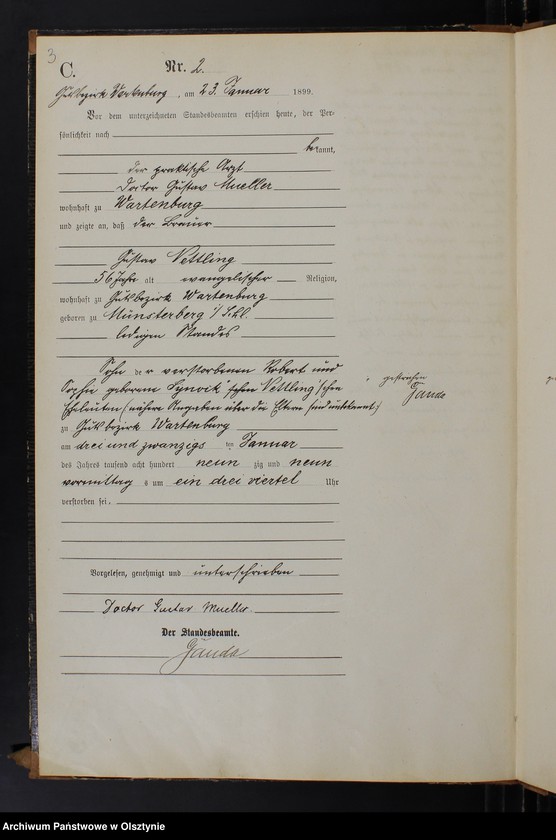 3
C.
Nr. 2.
Gutsbezirk Wartenburg, am 23. Januar 1899.
Vor dem unterzeichneten Standesbeamten erschien heute, der Per-
sönlichkeit nach
bekannt,
der praktische Arzt
Doctor Gustav Mueller
wohnhaft zu Wartenburg
und zeigte an, daß der Brauer
Gustav Vettling
56 Jahre alt evangelischer Religion,
wohnhaft zu Gutsbezirk Wartenburg
geboren zu Münsterberg i/Schl.
ledigen Standes
Sohn der verstorbenen Robert und
Sophie geborenen Vettling'schen
Eheleuten (nähere Angaben über die Eltern sind unbekannt)
zu Gutsbezirk Wartenburg
am drei und zwanzigs ten Januar
des Jahres tausend acht hundert neun zig und neun
vormittag s um ein drei viertel Uhr
verstorben sei.
gestrichen
Gande
Vorgelesen, genehmigt und unterschrieben
Doctor Gustav Mueller
Der Standesbeamte.
Gande
Archiwum Państwowe w Olsztynie